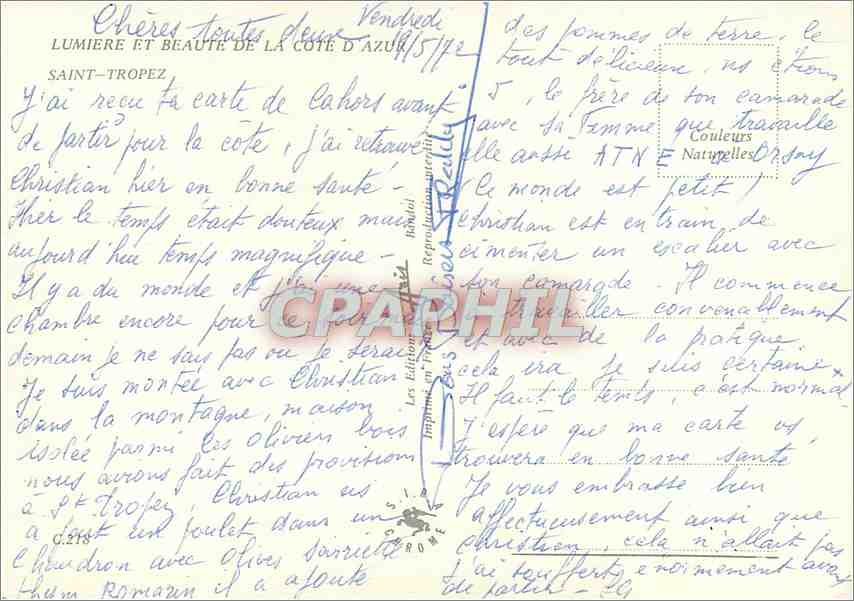 Vendredi
Chères toutes deux 19/5/72
LUMIERE ET BEAUTE DE LA COTE D'AZUR
SAINT-TROPEZ
J'ai reçu ta carte de Cahors avant
de partir pour la côte, j'ai retrouvé
Christian hier en bonne santé -
Hier le temps était douteux mais
aujourd'hui temps magnifique -
Il y a du monde et j'ai une
chambre encore pour ce
demain je ne sais pas ou je serai
Je suis montée avec Christian
dans la montagne, maison
isolée parmi les oliviers bois
nous avions fait des provisions
à St Tropez, Christian ns
a fait un poulet dans un
C.218
chaudron avec olives sarriette
thym Romarin il a ajouté
des pommes de terre, le
tout délicieux, ns étions
5, le frère de son camarade
avec sa femme que travaille
elle aussi ATNE Orsay
(Ce monde est petit)
Christian est en train de
cimenter un escalier avec
son camarade - Il commence
à travailler convenablement
et avec de la pratique
cela ira je suis certaine
Il faut le temps, c'est normal
J'espère que ma carte vs
trouvera en bonne santé
Je vous embrasse bien
affectueusement ainsi que
Christian, cela n'allait pas
j'ai souffert énormément avant
de partir -
Couleurs
Naturelles
Les Editions Bandol
Imprimé en France Reproduction interdite
SIRCHROME
CPAPHIL